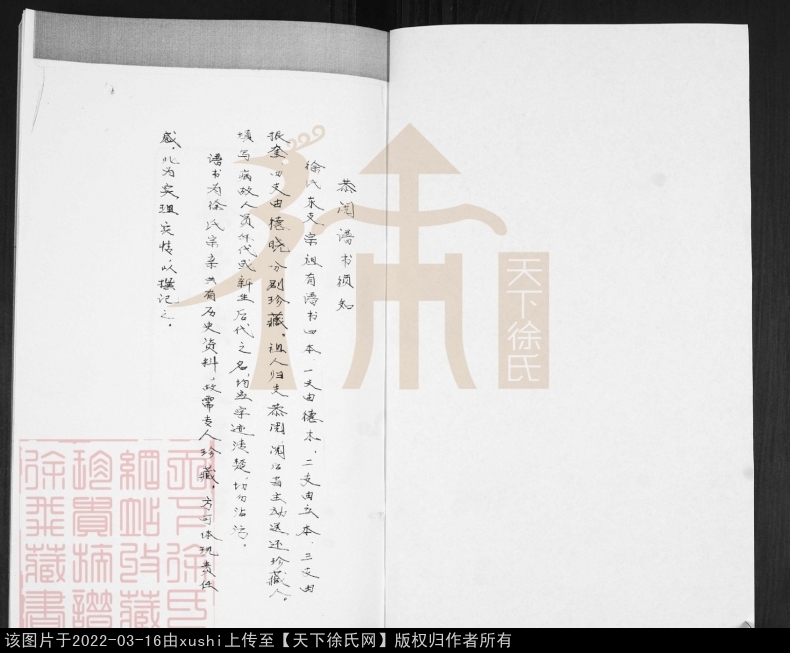 恭阅谱书须知
徐氏东支宗祖有谱书四本,一支由德本,二支由立本,三支由
振奎,四支由德晓分别珍藏。祖人归支恭阅,阅后当主动送还珍藏人。
填写病故人员年代或新生后代之名,均应字迹清楚,切勿沾污。
谱书为徐氏宗亲共有历史资料,故需专人珍藏,方可体现责任
感,此为实祖实情,以撰记之。
徐
天下徐氏
天下徐氏
網站改藏
珍貴族譜
徐飛藏書
该图片于2022-03-16由xushi上传至【天下徐氏网】版权归作者所有